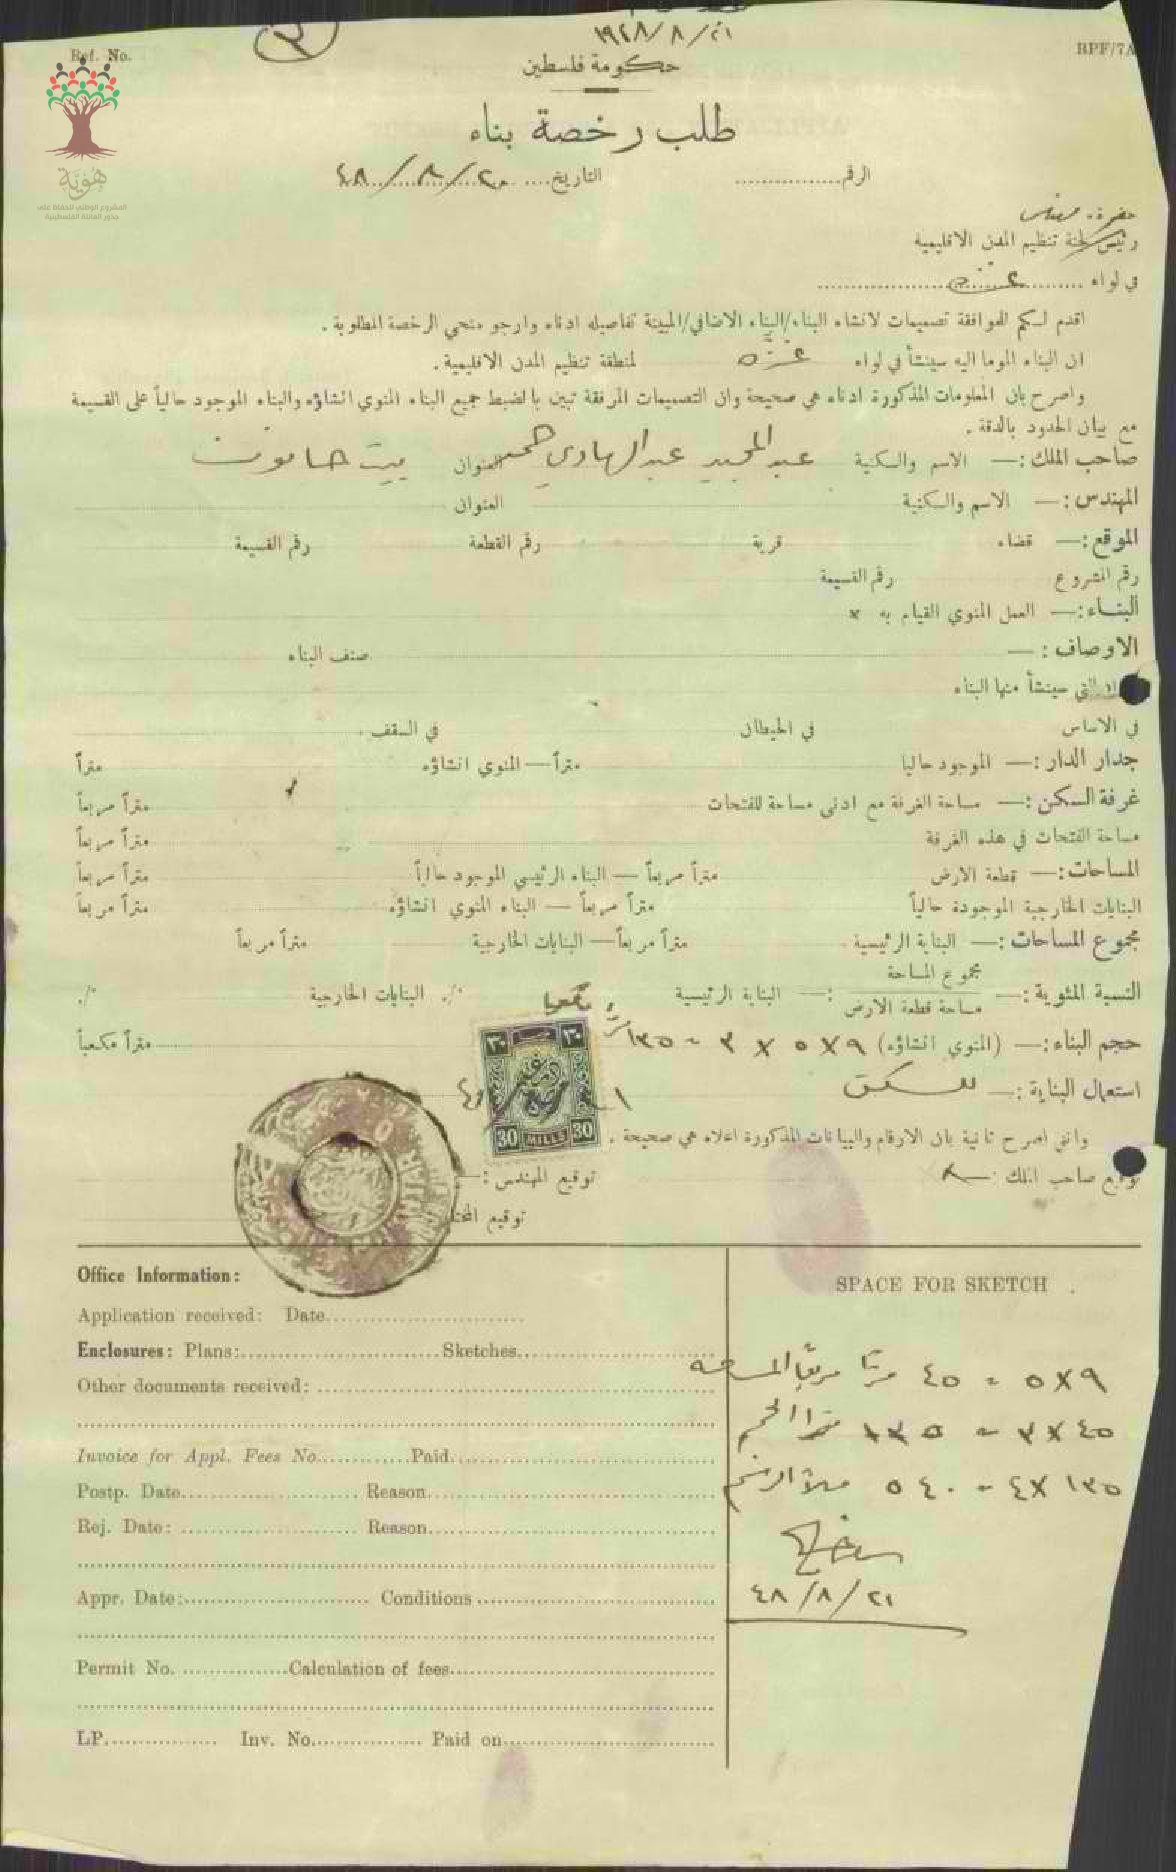 ١٩٤٨/٨/٢١
Ref. No.
RPF/7A
حكومة فلسطين
طلب رخصة بناء
الرقم ................ التاريخ .... ٤٨/٨/٢٠
هويّة
المشروع الوطني للحفاظ على
جذور العائلة الفلسطينية
حضرة
رئيس لجنة تنظيم المدن الاقليمية
في لواء غزه
اقدم لكم للموافقة تصميمات لانشاء البناء/البناء الاضافي/المبينة تفاصيله ادناه وارجو منحي الرخصة المطلوبة .
ان البناء الموما اليه سينشأ في لواء غزه لمنطقة تنظيم المدن الاقليمية .
واصرح بان المعلومات المذكورة ادناه هي صحيحة وان التصميمات المرفقة تبين بالضبط جميع البناء المنوي انشاؤه والبناء الموجود حالياً على القسيمة
مع بيان الحدود بالدقة .
صاحب الملك :— الاسم والكنية عبد المجيد عبد الهادي حمد العنوان بيت حانون
المهندس :— الاسم والكنية العنوان
الموقع :— قضاء قرية رقم القطعة رقم القسيمة
رقم المشروع رقم القسيمة
البناء :— العمل المنوي القيام به *
الاوصاف :— صنف البناء
التي سينشأ منها البناء
في الاساس في الحيطان في السقف
جدار الدار :— الموجود حاليا متراً — المنوي انشاؤه متراً
غرفة السكن :— مساحة الغرفة مع ادنى مساحة للفتحات متراً مربعاً
مساحة الفتحات في هذه الغرفة متراً مربعاً
المساحات :— قطعة الارض متراً مربعاً — البناء الرئيسي الموجود حالياً متراً مربعاً
البنايات الخارجية الموجودة حالياً متراً مربعاً — البناء المنوي انشاؤه متراً مربعاً
مجموع المساحات :— البناية الرئيسية متراً مربعاً — البنايات الخارجية متراً مربعاً
النسبة المئوية :— مجموع المساحة / مساحة قطعة الارض :— البناية الرئيسية ٪ البنايات الخارجية ٪
حجم البناء :— (المنوي انشاؤه) ٩ × ٥ × ٣ = ١٣٥ مكعبا متراً مكعباً
استعمال البناية :— للسكن
٣٠ ٣٠
30 MILLS 30
وانني اصرح ثانية بان الارقام والبيانات المذكورة اعلاه هي صحيحة .
توقيع صاحب الملك : توقيع المهندس :
توقيع المختار
Office Information:
Application received: Date
Enclosures: Plans: Sketches
Other documents received:
Invoice for Appl. Fees No. Paid
Postp. Date Reason
Rej. Date: Reason
Appr. Date: Conditions
Permit No. Calculation of fees
LP. Inv. No. Paid on
SPACE FOR SKETCH
٩ × ٥ = ٤٥ مترا مربعا المساحه
٤٥ × ٣ = ١٣٥ مترا الحجم
١٣٥ × ٤ = ٥٤٠ ملا الرسم
٤٨/٨/٢١